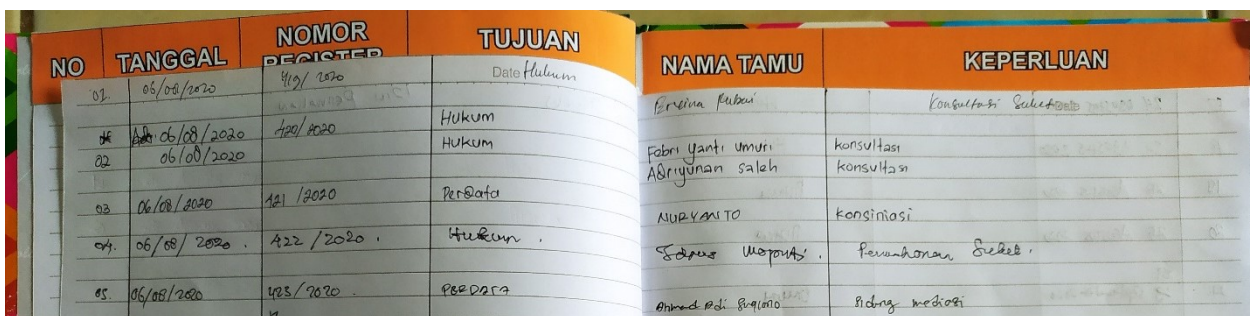 NO TANGGAL NOMOR REGISTER TUJUAN NAMA TAMU KEPERLUAN
01. 06/08/2020 419/2020 Date Hukum Konsultasi
06/08/2020 420/2020 Hukum Febri Yanti Umuri konsultasi
02 06/08/2020 Hukum Adriyunan Saleh konsultasi
03 06/08/2020 421/2020 Perdata NURYANTO konsiniasi
04. 06/08/2020. 422/2020. Hukum.
05. 06/08/2020 423/2020. PERDATA Ahmad Adi Sugiono Sidang mediasi